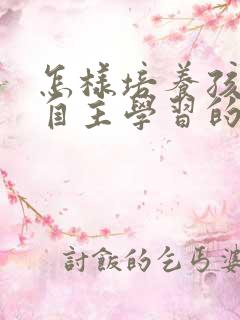 怎樣培養孩
自主學習的
討飯的乞丐婆